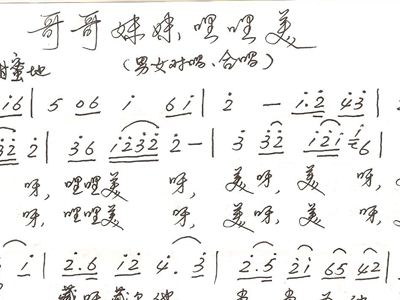 哥哥妹妹哩哩美
蜜地 （男女对唱、合唱）
i6 | 5 06 i 6i | 2 — i.2 43 |
32 2 | 36 i232 2 — | 3 32 i2i i6
呀, 哩哩美 呀, 美呀, 美 呀,
呀, 哩哩美 呀, 美呀, 美 呀,
i | 2.6 i2 4. 3 | 2.5 2i 65 42 |